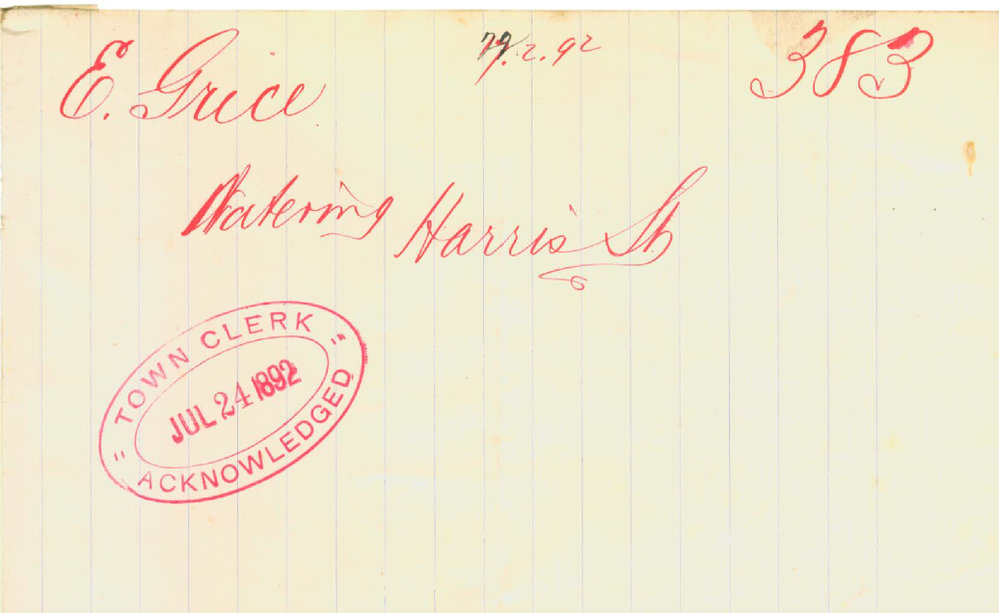 E. Grice 2.92 383
Watering Harris St
TOWN CLERK
JUL 24 1892
ACKNOWLEDGED